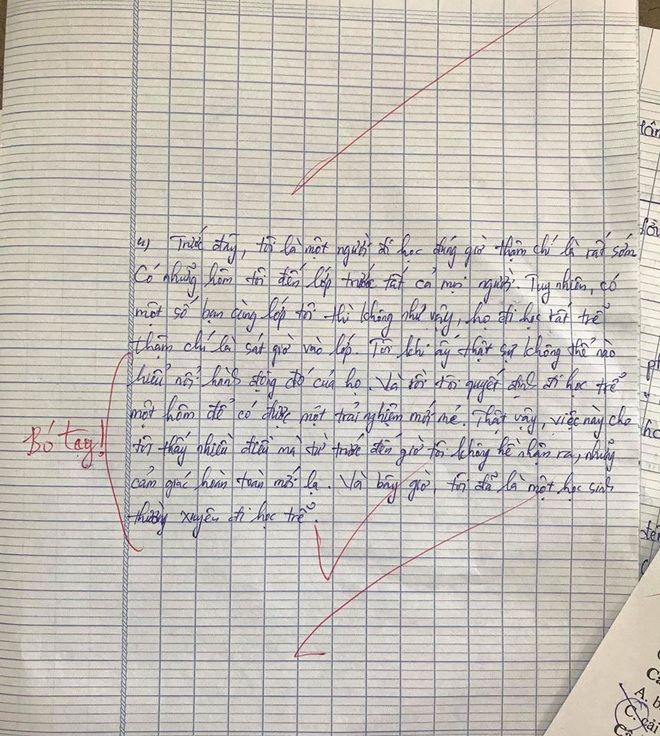 4) Trước đây, tôi là một người đi học đúng giờ thậm chí là rất sớm
Có những hôm tôi đến lớp trước tất cả mọi người. Tuy nhiên, có
một số bạn cùng lớp tôi thì không như vậy, họ đi học rất trễ
thậm chí là sát giờ vào lớp. Tôi khi ấy thật sự không thể nào
hiểu nổi hành động đó của họ. Và rồi tôi quyết định đi học trễ
Bó tay!
một hôm để có được một trải nghiệm mới mẻ. Thật vậy, việc này cho
tôi thấy nhiều điều mà từ trước đến giờ tôi không hề nhận ra, những
cảm giác hoàn toàn mới lạ. Và bây giờ, tôi đã là một học sinh
thường xuyên đi học trễ.
A. b
C. cải